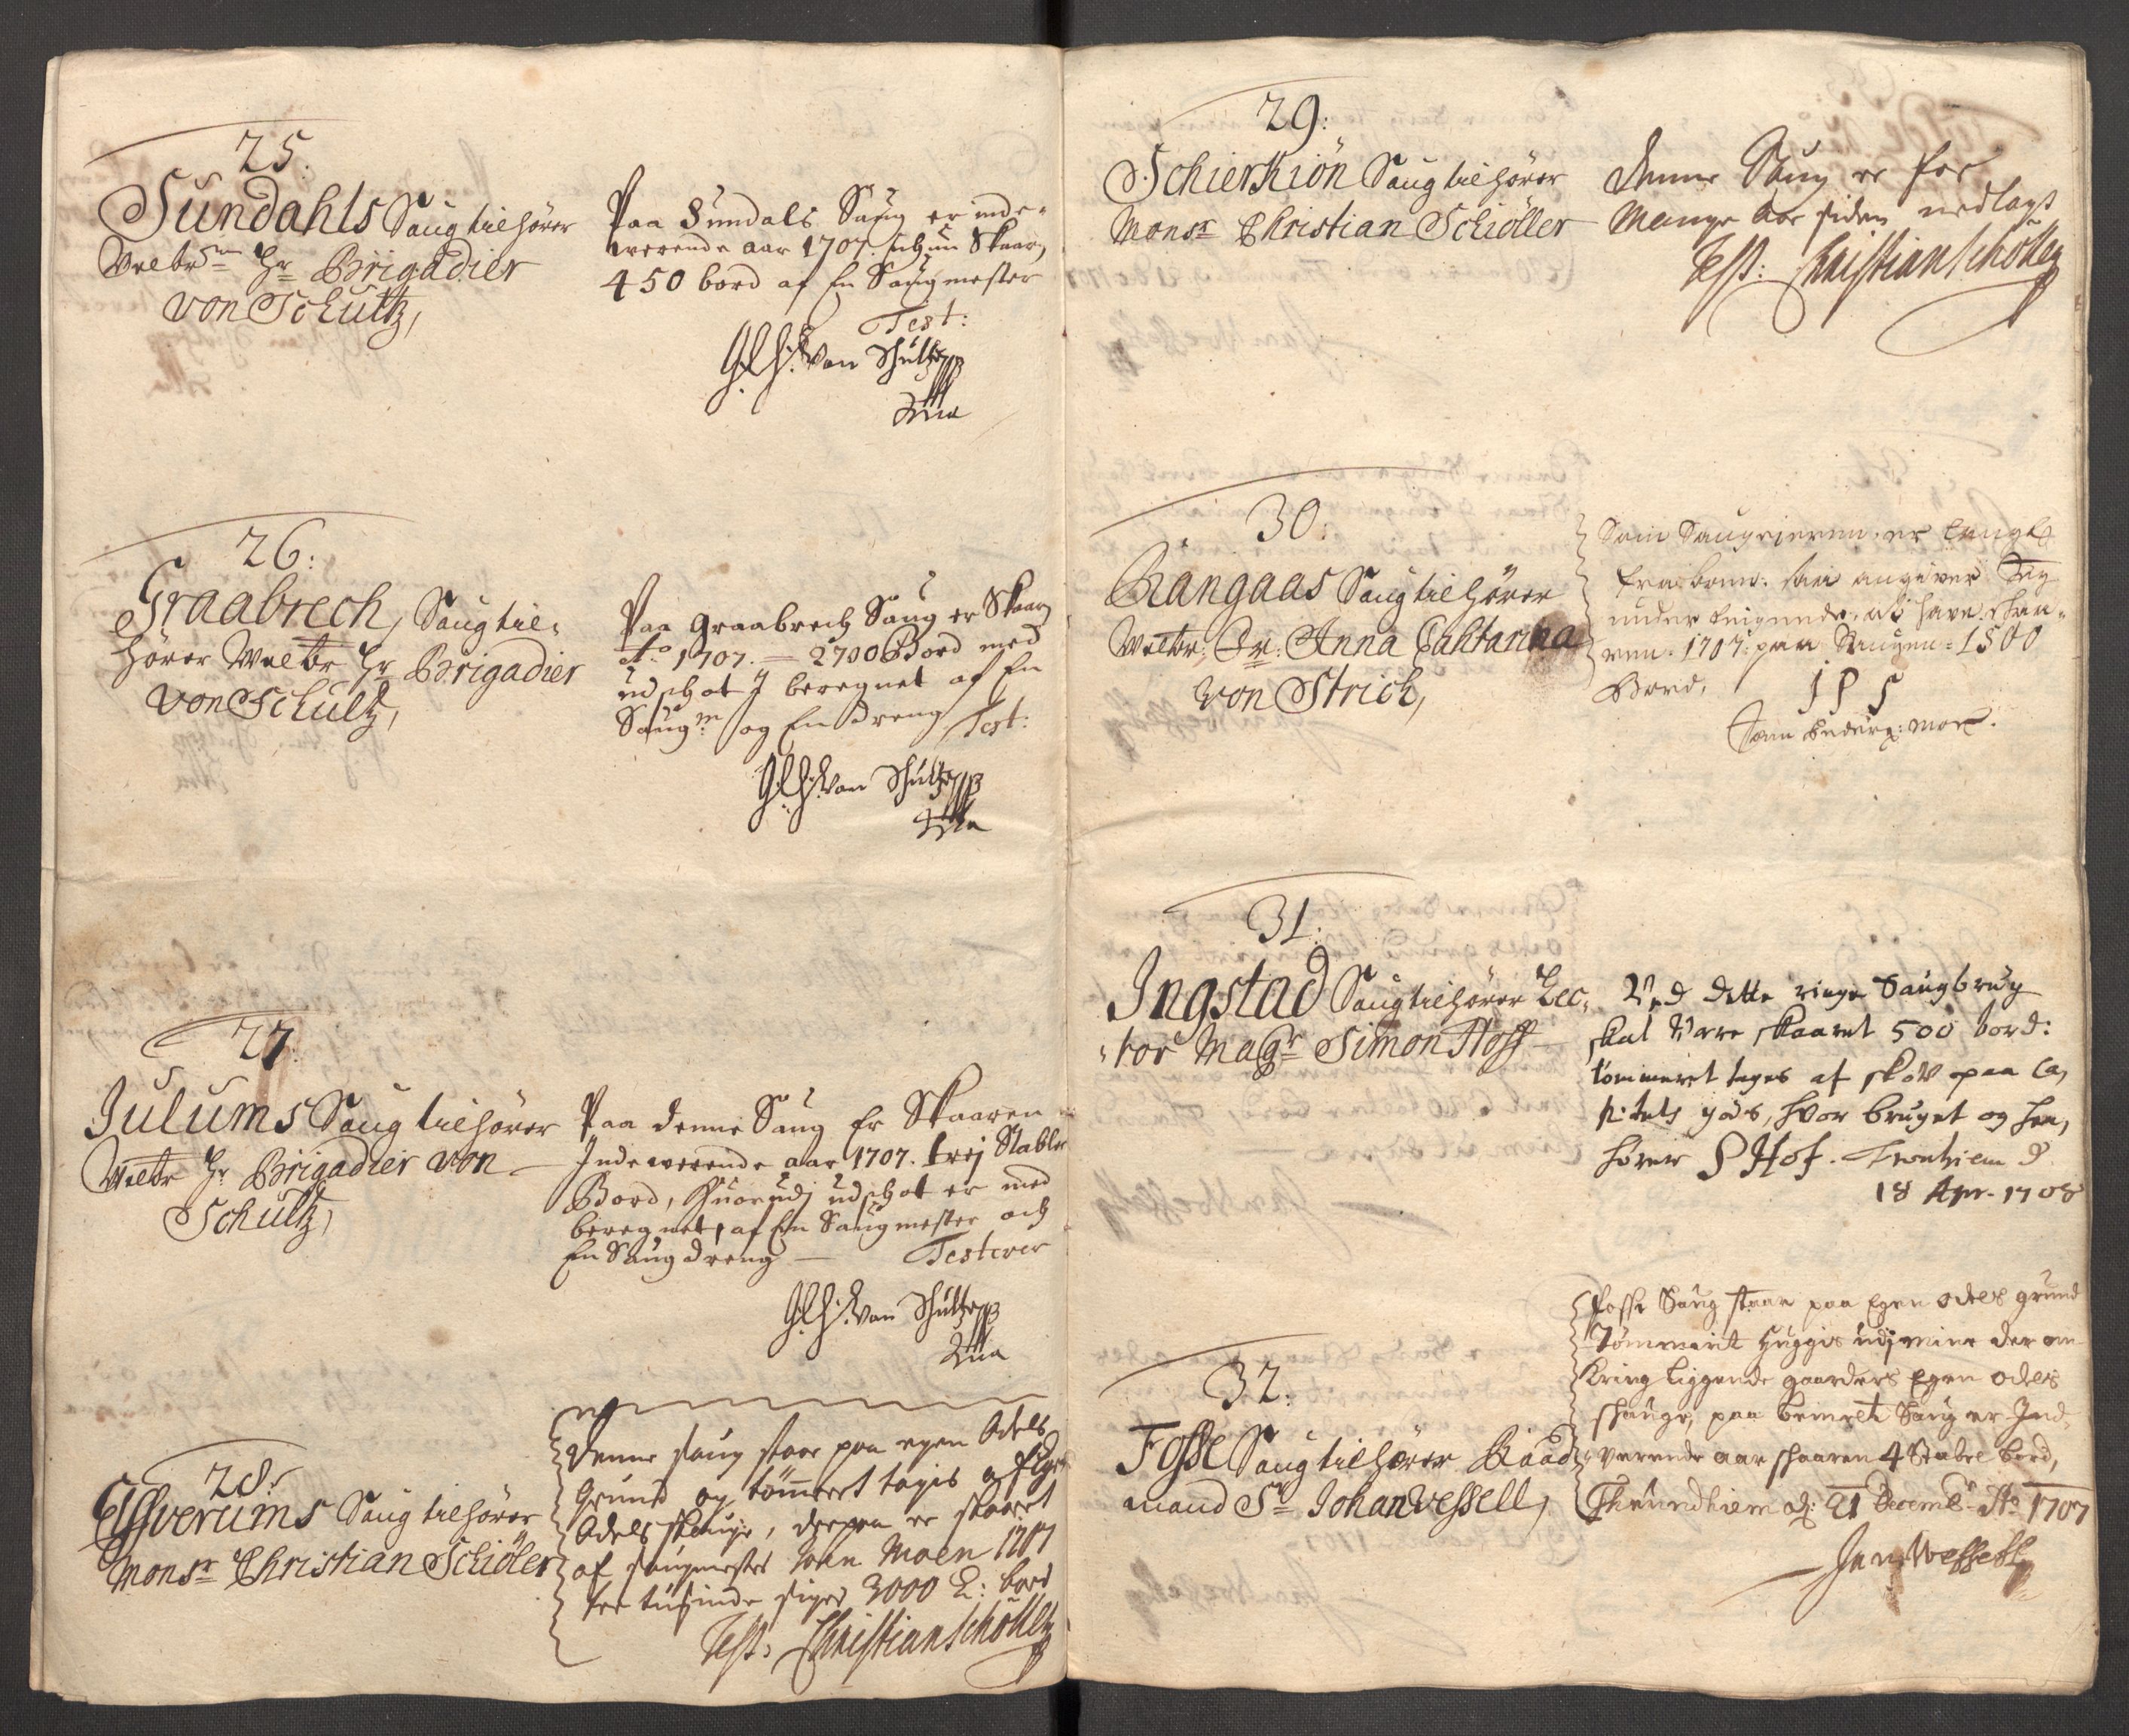 25.
Sundahls Saug tilhører
Welbr Hr Brigadier
von Schultz,
Paa Sundals Saug er inde-
werende aar 1707. Skaar,
450 bord af En Saugmester
Test:
von Schultz
26:
Graabrech, Saug til-
hører Welbr Hr Brigadier
von Schultz,
Paa Graabrech Saug er Skaar,
Ao 1707. — 2700 Bord med
udschot J beregnet af En
Saugm og En dreng Test:
von Schultz
27.
Julums Saug tilhører
Welbr Hr Brigadier von
Schultz,
Paa denne Saug Er Skaaren
Inde werende aar 1707. trej Stabler
Bord, Huorudj udschot er med
beregnet, af En Saugmester och
En Saugdreng — Testerer
von Schultz
28.
Elfverums Saug tilhører
Monsr Christian Schiøler
Denne saug staar paa egen Odels
Grund og tømmert tagis af Egne
Odels skouge, derpaa er skaaret
af saugmester Joen Moen 1707
tre tusinde siger 3000 bord
Test: Christian Schøller
29:
Schierkiön Saug tilhører
Monsr Christian Schiøller
Denne Saug er for
Mange Aar siden nedlagt
Test: Christian Schøller
30:
Rangaas Saug tilhører
Welbr: Fr: Anna Cahtarina
von Strick,
Som Saugeieren er langt
fra bom: saa angiver Sig
under at have skaa-
ren 1707: paa Saugen = 1500
Bord,
J P S
31.
Ingstad Saug tilhører Lec-
tor Magr Simon Hoff
Ved dette ringe Saugbrug
skal Være skaaret 500 bord:
tømmeret tages af skov paa Ca,
pitels gods, hvor bruget og hen,
hører S Hof. Tronhiem d
18 Apr. 1708
32.
Fosse Saug tilhører Raad-
mand Sr Johan Wessell,
Fosse Saug staar paa Egen odels grund
Tømmerit huggis udj mine der om
kring liggende gaarders Egen odels
skouge, paa bemelte Saug er Ind-
værende aar skaaren 4 Stabel bord,
Thrundhiem d: 21 Decembr Ao 1707
Jan Wessell